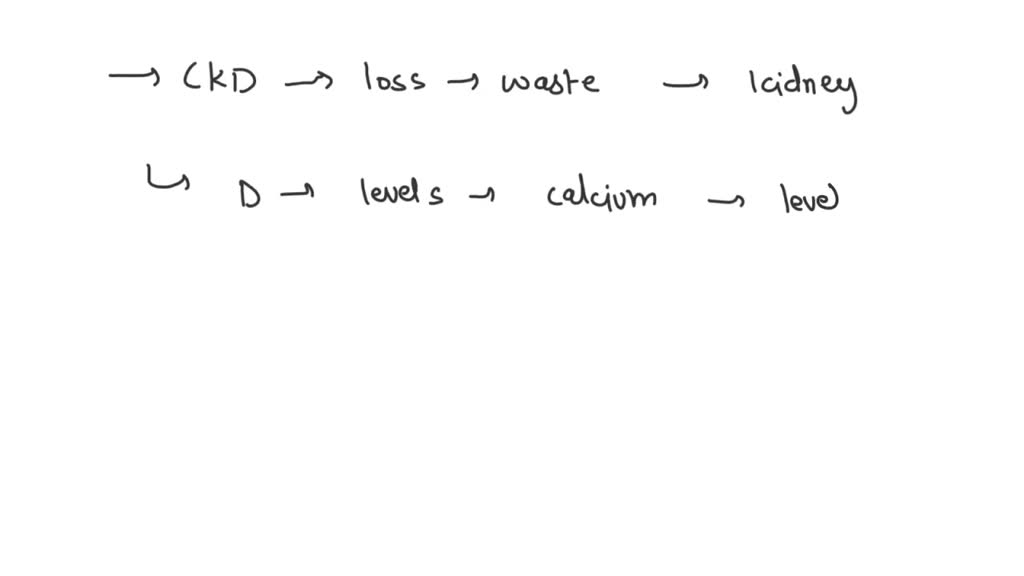 → CKD → loss → waste → kidney
↳ D → levels → calcium → level